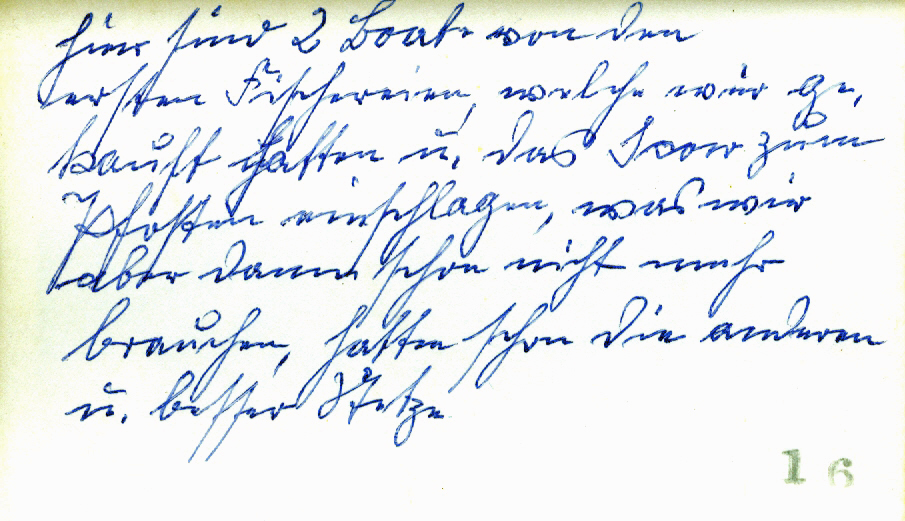 hier sind 2 Boote von den
ersten Fischereien, welche wir ge,
kauft hatten u. das Scow zum
Pfosten einschlagen, was wir
aber dann schon nicht mehr
brauchen, hatten schon die anderen
u. besser Netze
16